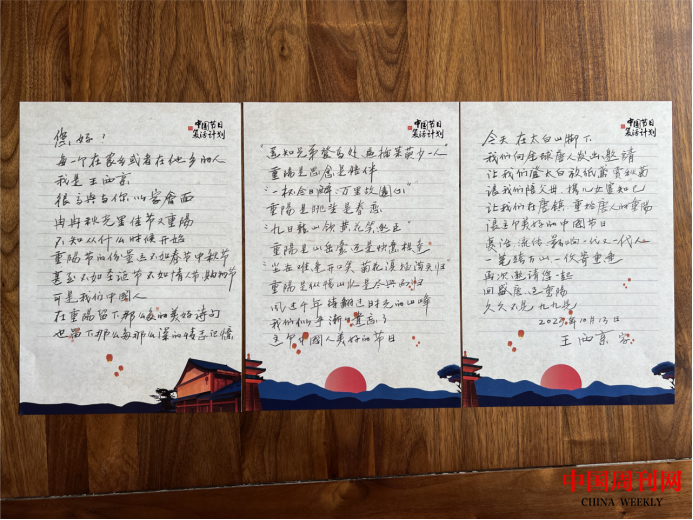 中国节日
复活计划
您好！
每一个在家乡或者在他乡的人
我是王西京
很高兴与你以容会面
冉冉秋光里佳节又重陽
不知从什么时候开始
重陽节的份量立不如春节中秋节
甚至不如圣诞节不如情人节购物节
可是我们中国人
在重陽留下那么多的美好诗句
也留下那么多那么深的情志记憶
中国节日
复活计划
"遥知兄弟登高处 遍插茱萸少一人"
重陽是思念是陪伴
"一杯今日醉 万里故園心"
重陽是眺望是眷恋
"九日龍山飲 黄花笑逐臣"
重陽是山岳雲
"尘世难逢开口笑 菊花须插满头归"
重陽是纵情山水是尽兴而归
風过千年 待翻过时光的山峰
我们似乎渐渐遺忘了
这个中国人美好的节日
中国节日
复活计划
今天 在太白山脚下
我们向全球唐人发出邀請
让我们登太白放纸鸢 赏秋菊
讓我们陪父母 携儿女 邀知己
让我们在唐镇 重拾唐人的重陽
讓这个美好的中国节日
复活 流传 影响一代又一代人
一笔踏万山 一伙寄重逢
再次邀請您一起
回盛唐 过重陽
久久不见 九九见
2023年10月13日
王西京
中国周刊网
CHINA WEEKLY